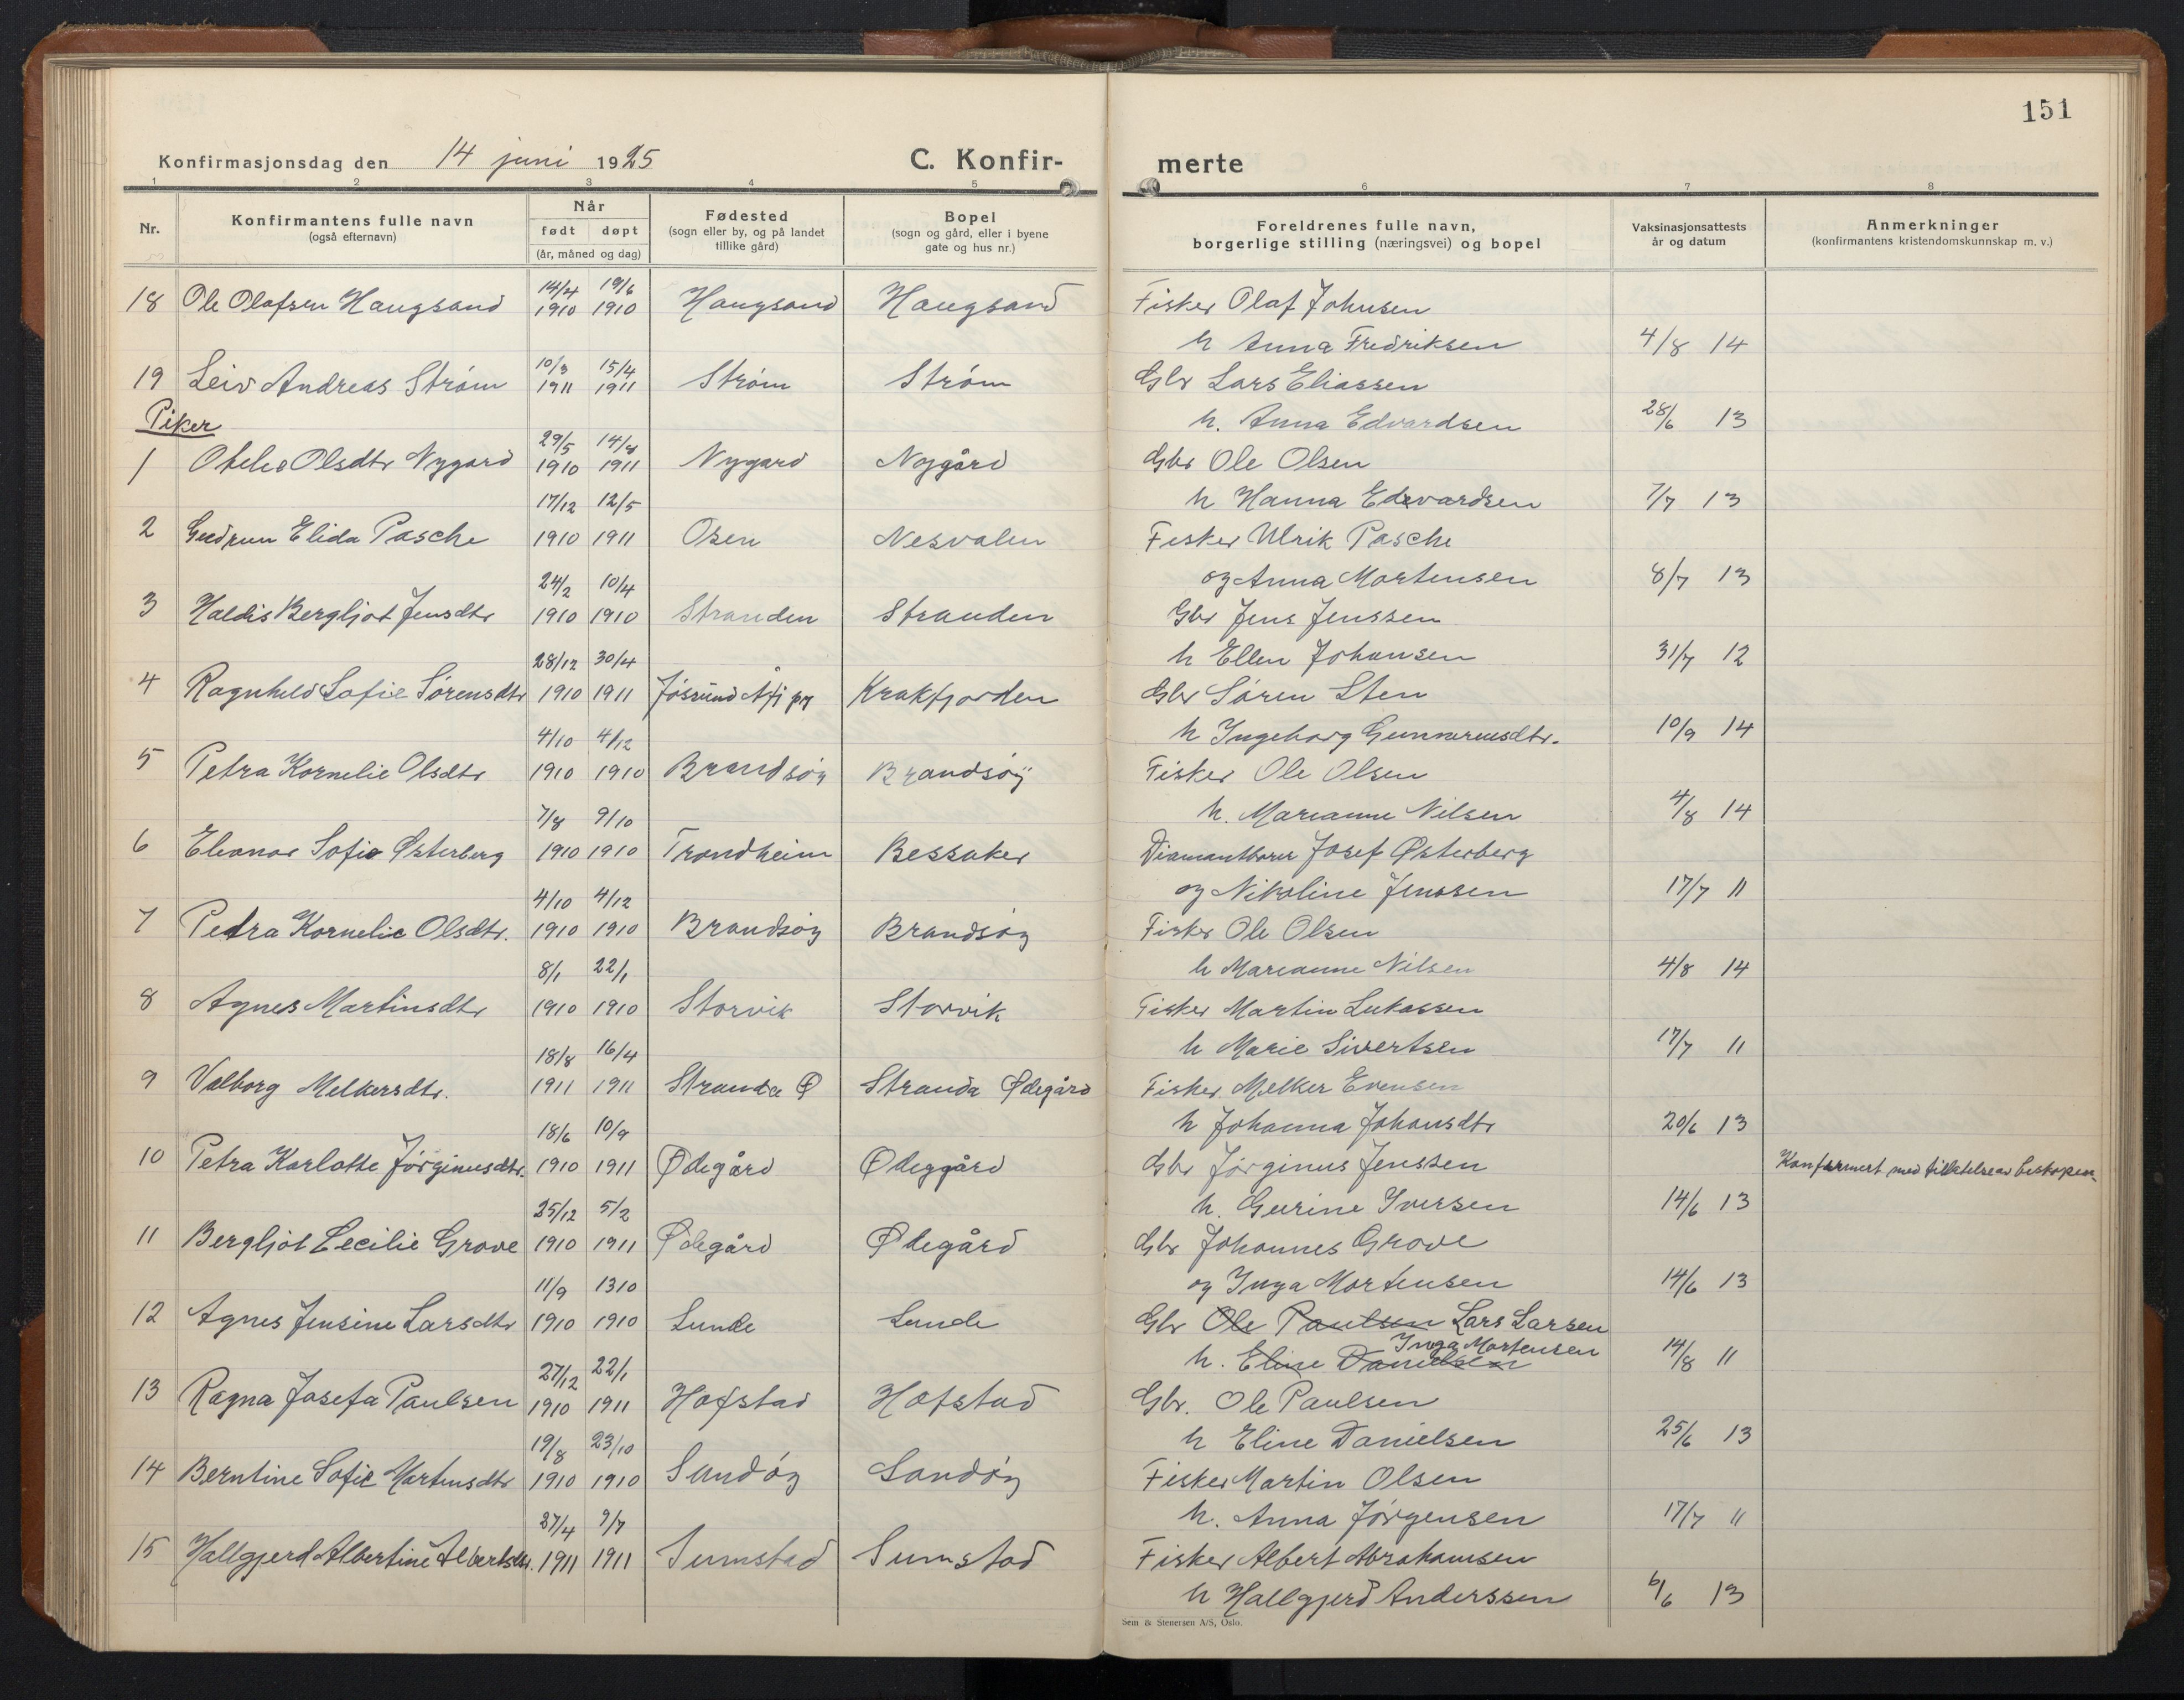 151
Konfirmasjonsdag den 14 juni 1925 C. Konfir-merte
1 2 3 4 5 6 7 8
Nr. Konfirmantens fulle navn (også efternavn) Når født døpt (år, måned og dag) Fødested (sogn eller by, og på landet tillike gård) Bopel (sogn og gård, eller i byene gate og hus nr.) Foreldrenes fulle navn, borgerlige stilling (næringsvei) og bopel Vaksinasjonsattests år og datum Anmerkninger (konfirmantens kristendomskunnskap m. v.)
14/4 19/6
18 Ole Olafsen Haugsand 1910 1910 Haugsand Haugsand Fisker Olaf Johnsen
h Anna Fredriksen 4/8 14
10/3 15/4
19 Leiv Andreas Strøm 1911 1911 Strøm Strøm Gbr Lars Eliassen
Piker h. Anna Edvardsen 28/6 13
29/5 14/4
1 Olsdtr Nygard 1910 1911 Nygard Nygård Gbr Ole Olsen
h Hanna Edevardsen 7/7 13
17/12 12/5
2 Gudrun Elida Pasche 1910 1911 Osen Nesvalen Fisker Ulrik Pasche
og Anna Mortensen 8/7 13
24/2 10/4
3 Haldis Bergljot Jensdtr 1910 1910 Stranden Stranden Gbr Jens Jenssen
h Ellen Johansen 31/7 12
28/12 30/4
4 Ragnhild Sofie Sørensdtr 1910 1911 Jøssund Krakfjorden Gbr Søren Sten
h Ingeborg Gunnerusdtr. 10/9 14
4/10 4/12
5 Petra Kornelie Olsdtr 1910 1910 Brandsøy Brandsøy Fisker Ole Olsen
h. Marianne Nilsen 4/8 14
7/8 9/10
6 Eleonor Sofie Østerberg 1910 1910 Trondheim Bessaker Diamantborer Josef Østerberg
og Nikoline Jenssen 17/7 11
4/10 4/12
7 Petra Kornelie Olsdtr. 1910 1910 Brandsøy Brandsøy Fisker Ole Olsen
h Marianne Nilsen 4/8 14
8/1 22/1
8 Agnes Martinsdtr 1910 1910 Storvik Storvik Fisker Martin Lukassen
h Marie Sivertsen 17/7 11
18/8 16/4
9 Valborg Melkersdtr. 1911 1911 Stranda Ø Stranda Ødegård Fisker Melker Evensen
h Johanna Johansdtr 20/6 13
18/6 10/9
10 Petra Karlotte Jørginusdtr. 1910 1911 Ødegård Ødeggård Gbr Jørginus Jenssen Konfirmert med tillatelse av biskopen.
h. Gurine Iversen 14/6 13
25/12 5/2
11 Bergljot Cecilie Grove 1910 1911 Ødegård Ødegård Gbr Johannes Grove
og Inga Mortensen 14/6 13
11/9 13 10
12 Agnes Jensine Larsdtr 1910 1910 Lunde Lunde Gbr Ole Paulsen Lars Larsen
h. Eline Danielsen Inga Mortensen 14/8 11
27/12 22/1
13 Ragna Josefa Paulsen 1910 1911 Hofstad Hofstad Gbr. Ole Paulsen
h Eline Danielsen 25/6 13
19/8 23/10
14 Berntine Sofie Martinsdtr 1910 1910 Sandøy Sandøy Fisker Martin Olsen
h. Anna Jørgensen 17/7 11
27/4 9/7
15 Hallgjerd Albertine Albertsdtr. 1911 1911 Sumstad Sumstad Fisker Albert Abrahamsen
h Hallgjerd Anderssen 6/6 13
Sem & Stenersen A/S, Oslo.